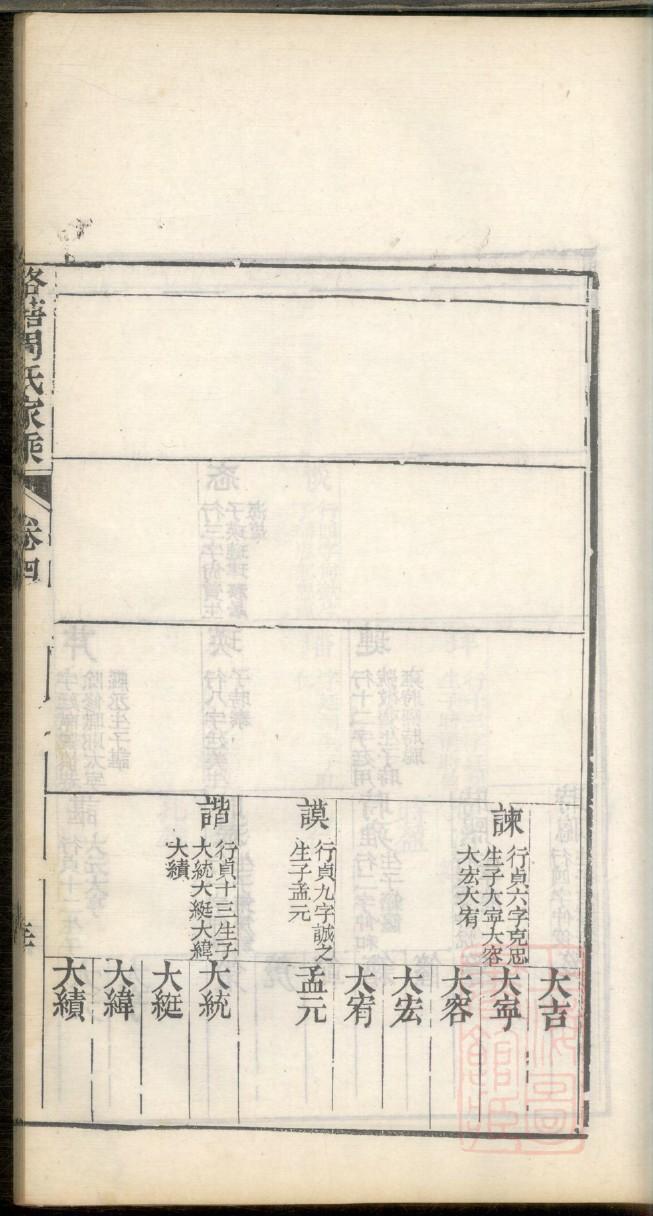 諫
行貞六字克忠
生子大寧大容
大宏大宥
謨
行貞九字誠之
生子孟元
諧
行貞十三生子
大統大綎大緯
大績
大吉
大寧
大容
大宏
大宥
孟元
大統
大綎
大緯
大績
周氏家乘
卷四